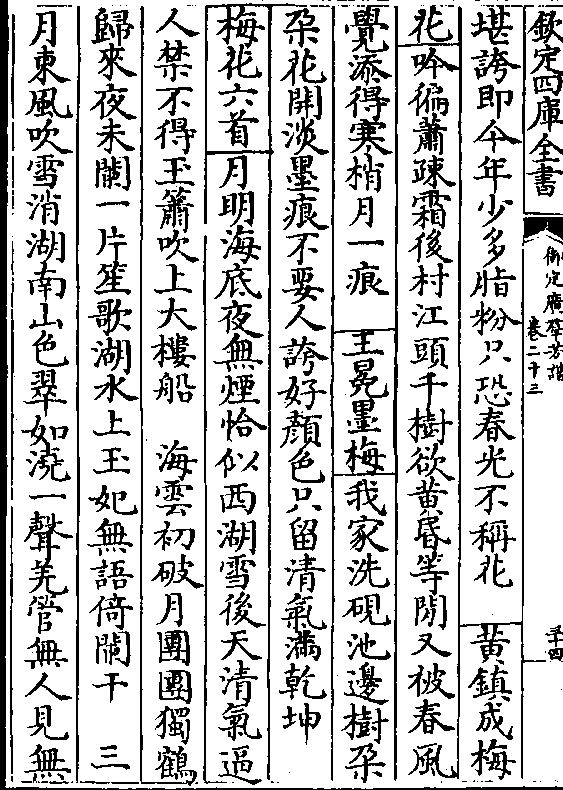 欽定四庫全書
御定廣群芳譜
卷二十三
三十四
堪誇即今年少多脂粉只恐春光不稱花 黃鎮成梅
花 吟徧蕭疎霜後村江頭千樹欲黃昏等閒又被春風
覺添得寒梢月一痕 王冕墨梅 我家洗硯池邊樹朶
朶花開淡墨痕不要人誇好顔色只留清氣滿乾坤
梅花六首 月明海底夜無煙恰似西湖雪後天清氣逼
人禁不得玉簫吹上大樓船 海雲初破月團團獨鶴
歸來夜未闌一片笙歌湖水上玉妃無語倚闌干 三
月東風吹雪消湖南山色翠如澆一聲羌管無人見無